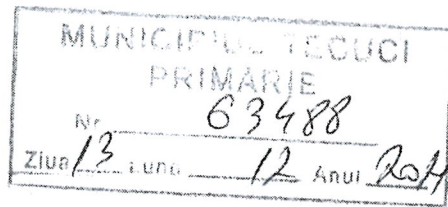 MUNICIPIUL TECUCI
PRIMĂRIE
Nr. 63488
Ziua 13 Luna 12 Anul